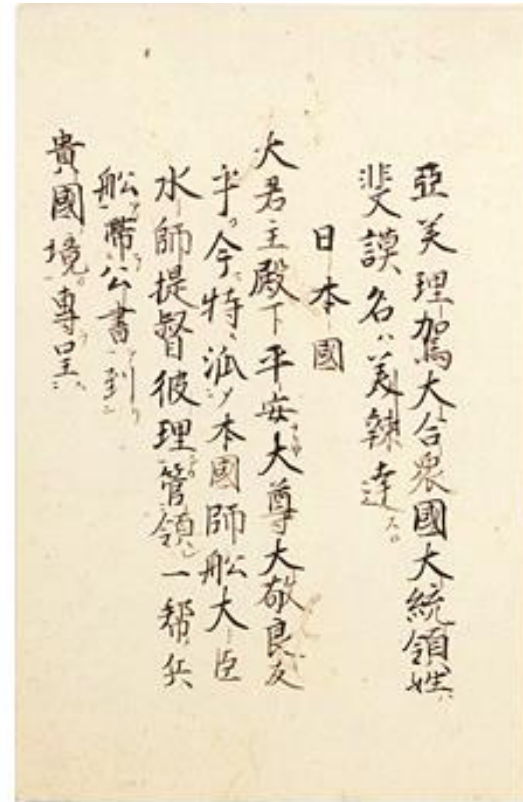 亞美理駕大合衆國大統領姓ハ
斐謨名ハ美辣達
日本國
大君主殿下平安大尊大敬良友
乎今特ニ派ノ本國師船大臣
水師提督彼理管領一幇兵
船帶公書到
貴國境專呈